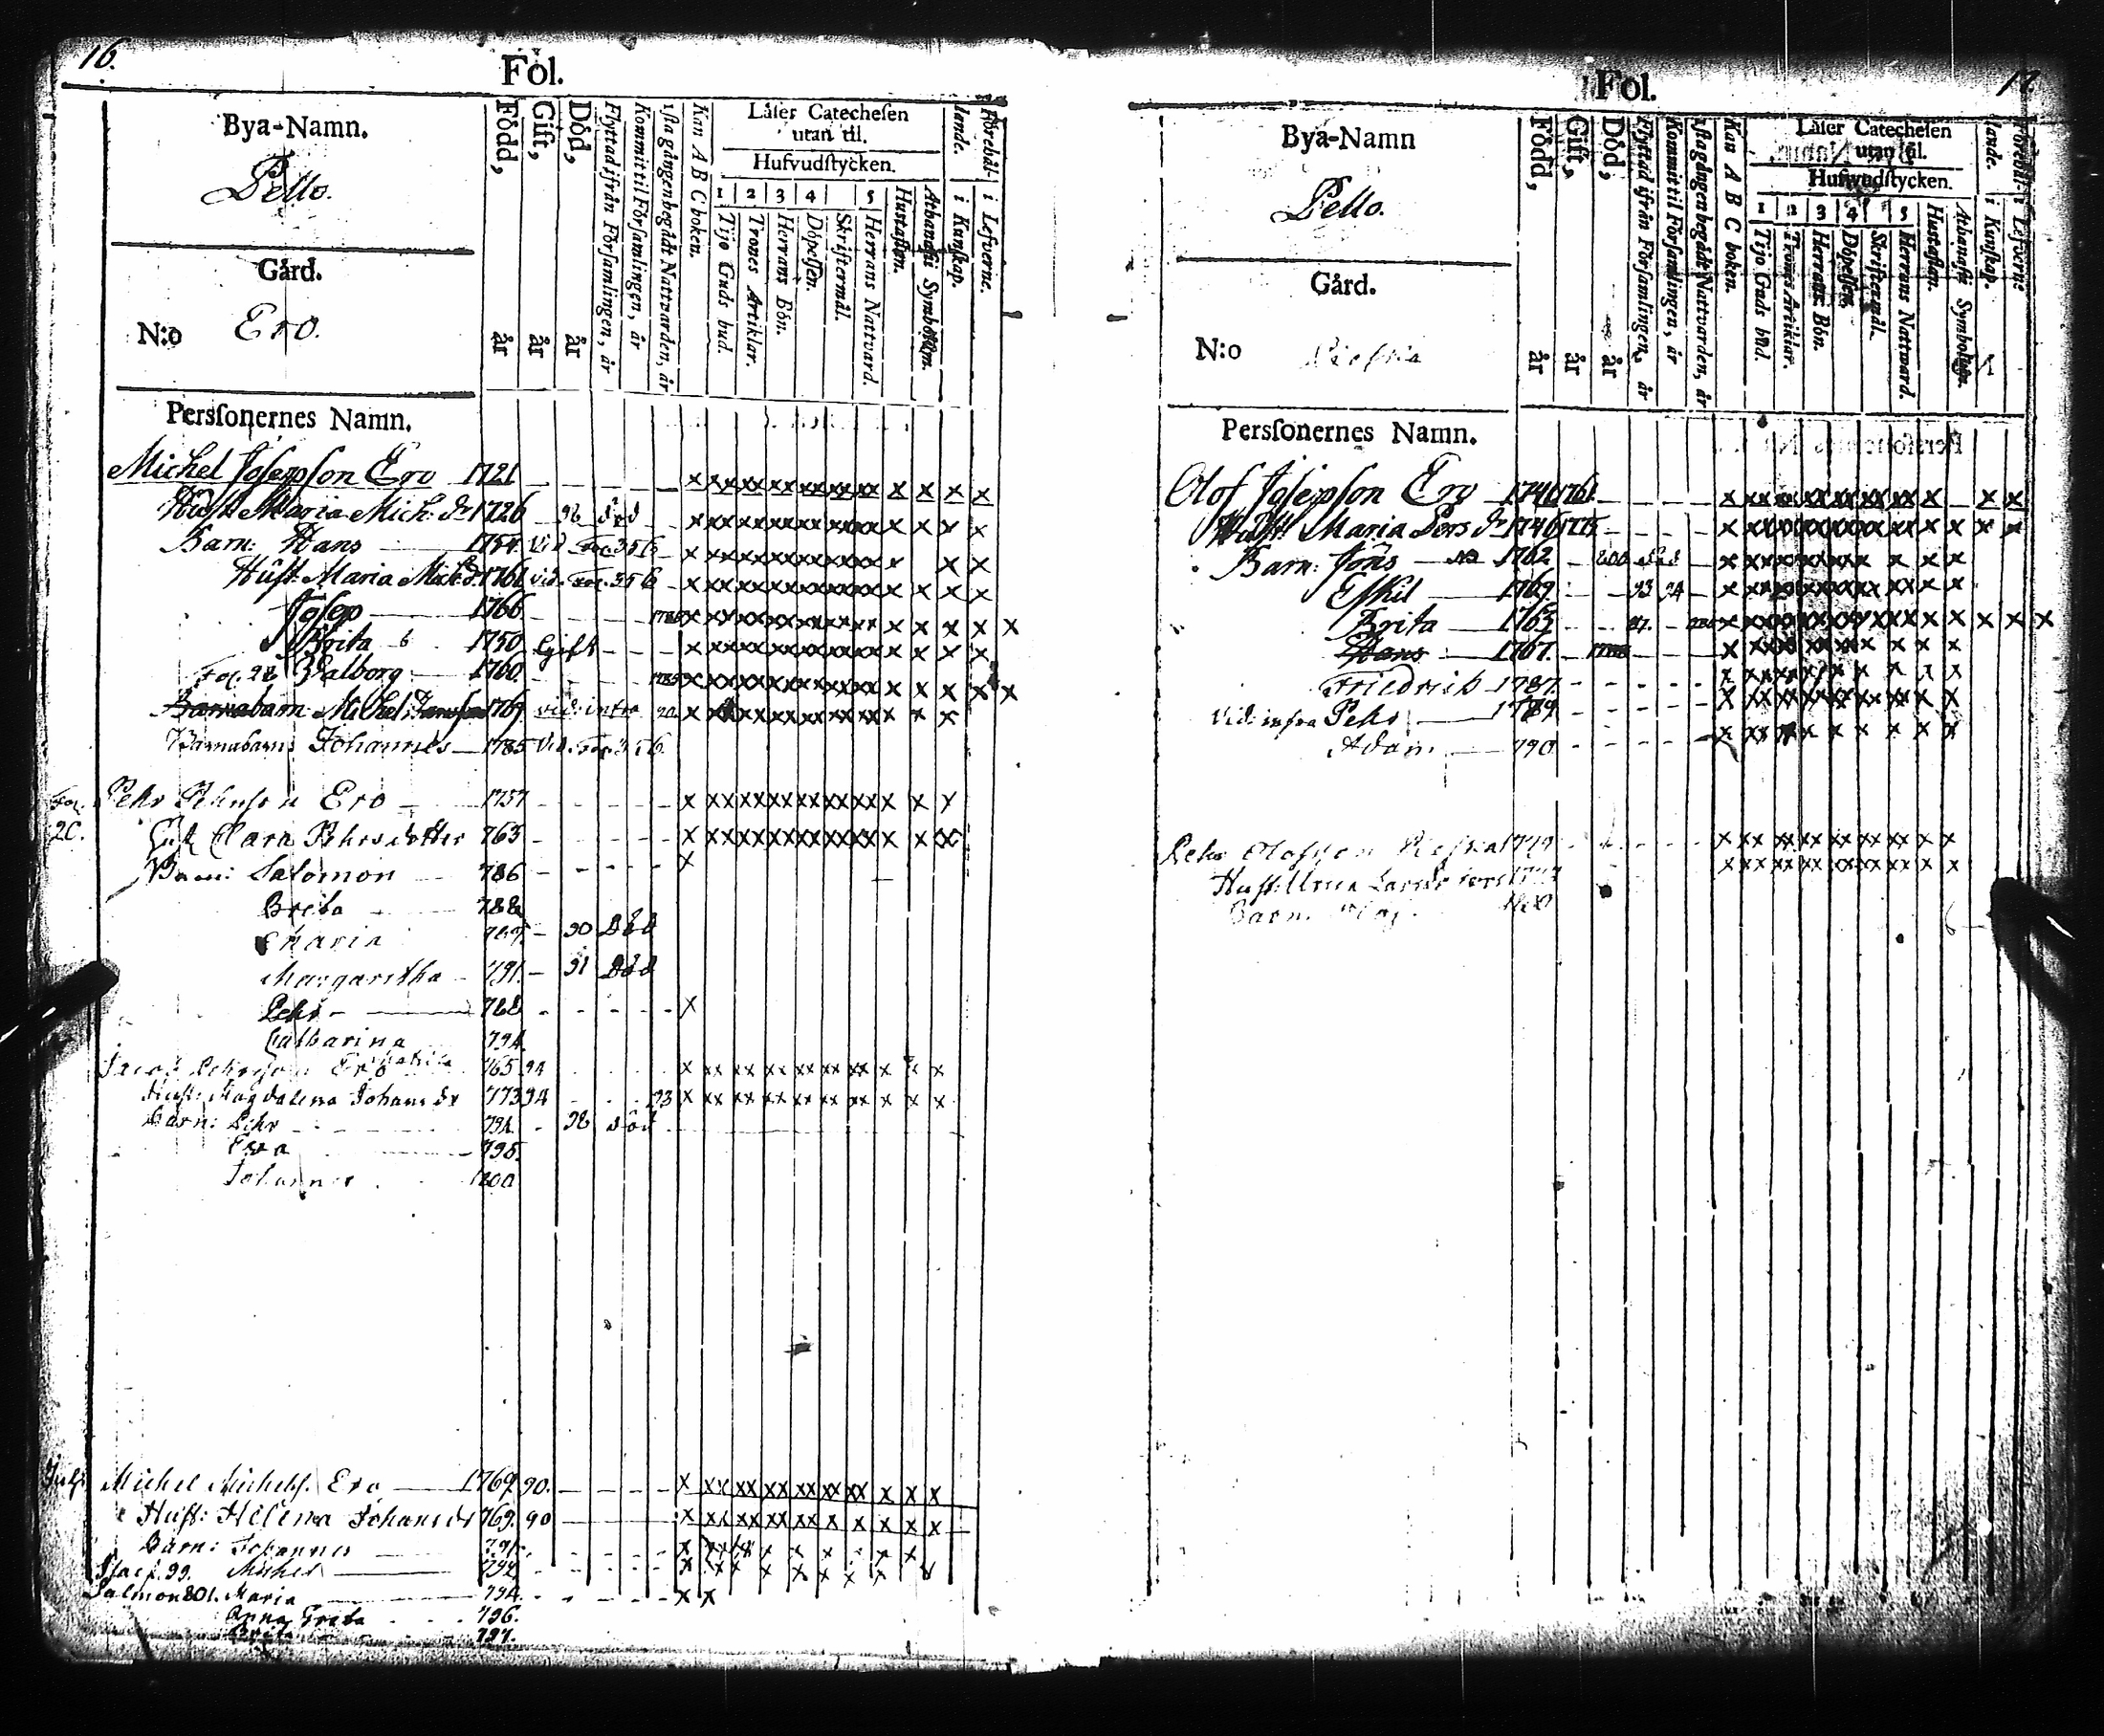 16.
Fol.
Bya-Namn.
Pello.
Gård.
N:o Ero.
Persſonernes Namn.
Född, år
Gift, år
Död, år
Flyttad ifrån Förſamlingen, år
Kommit til Förſamlingen, år
1ſta gången begådt Nattvarden, år
Kan A B C boken.
Läſer Catecheſen utan til.
Hufvudſtycken.
1 2 3 4 5
Tijo Guds bud.
Trones Artiklar.
Herrans Bön.
Döpelſen.
Skriftermål.
Herrans Nattvard.
Huſtaflan.
Athanaſii Symbolum.
Förehållande.
i Kunſkap.
i Lefverne.
Michel Joſepſon Ero 1721
Huſt. Maria Mich. dr 1726 - 98 död
Barn: Hans 1754 Vid. Fol. 356
Huſt. Maria Mich. d. 1761 vid. Fol. 356
Joſep 1766
Brita 1750 Gift
Fol. 28 Valborg 1760
Barnabarn Michel 1769 vid: infra 90
Barnabarn: Johannes 1785 Vid. Fol. 356
Fol. 20. Pehr Ero 1757
Huſt Clara Pehrsdotter 763
Barn: Salomon 786
Brita 788
Maria - 90 Död
Margaretha 791 - 91 Död
Pehr 788
Catharina 794
Jacob Pehrsson Ero 765 94
Huſt: Magdalena Johans dr 773 94 93
Barn: Pehr - 98 död
Eva 798
Johannes 1800
Michel Michelſ. Ero 1769. 90.
Huſt: Helena Johansdr 769. 90
Barn: Johannes 791
Michel 792
Iſac f. 99.
Salmon 801. Maria 794
Anna Greta 796.
Brita 797.
17.
Fol.
Bya-Namn
Pello.
Gård.
N:o
Persſonernes Namn.
Född, år
Gift, år
Död, år
Flyttad ifrån Förſamlingen, år
Kommit til Förſamlingen, år
1ſta gången begådt Nattvarden, år
Kan A B C boken.
Läſer Catecheſen utan til.
Hufvudſtycken.
1 2 3 4 5
Tijo Guds bud.
Trones Artiklar.
Herrans Bön.
Döpelſen.
Skriftermål.
Herrans Nattward.
Huſtaflan.
Athanaſii Symbolum.
Förehållande.
i Kunſkap.
i Lefverne
Olof Joſepſon Ero 1740 1761
Huſt Maria Pers dr 1746
Barn: Jöns 1762 - 800 död
Eſkil 1769 93 94
Brita 1765
Hans 1767
Friedrich 1787
Vid: infra Pehr 1789
Adam 790
Pehr Olofsson
Huſt:
Barn: